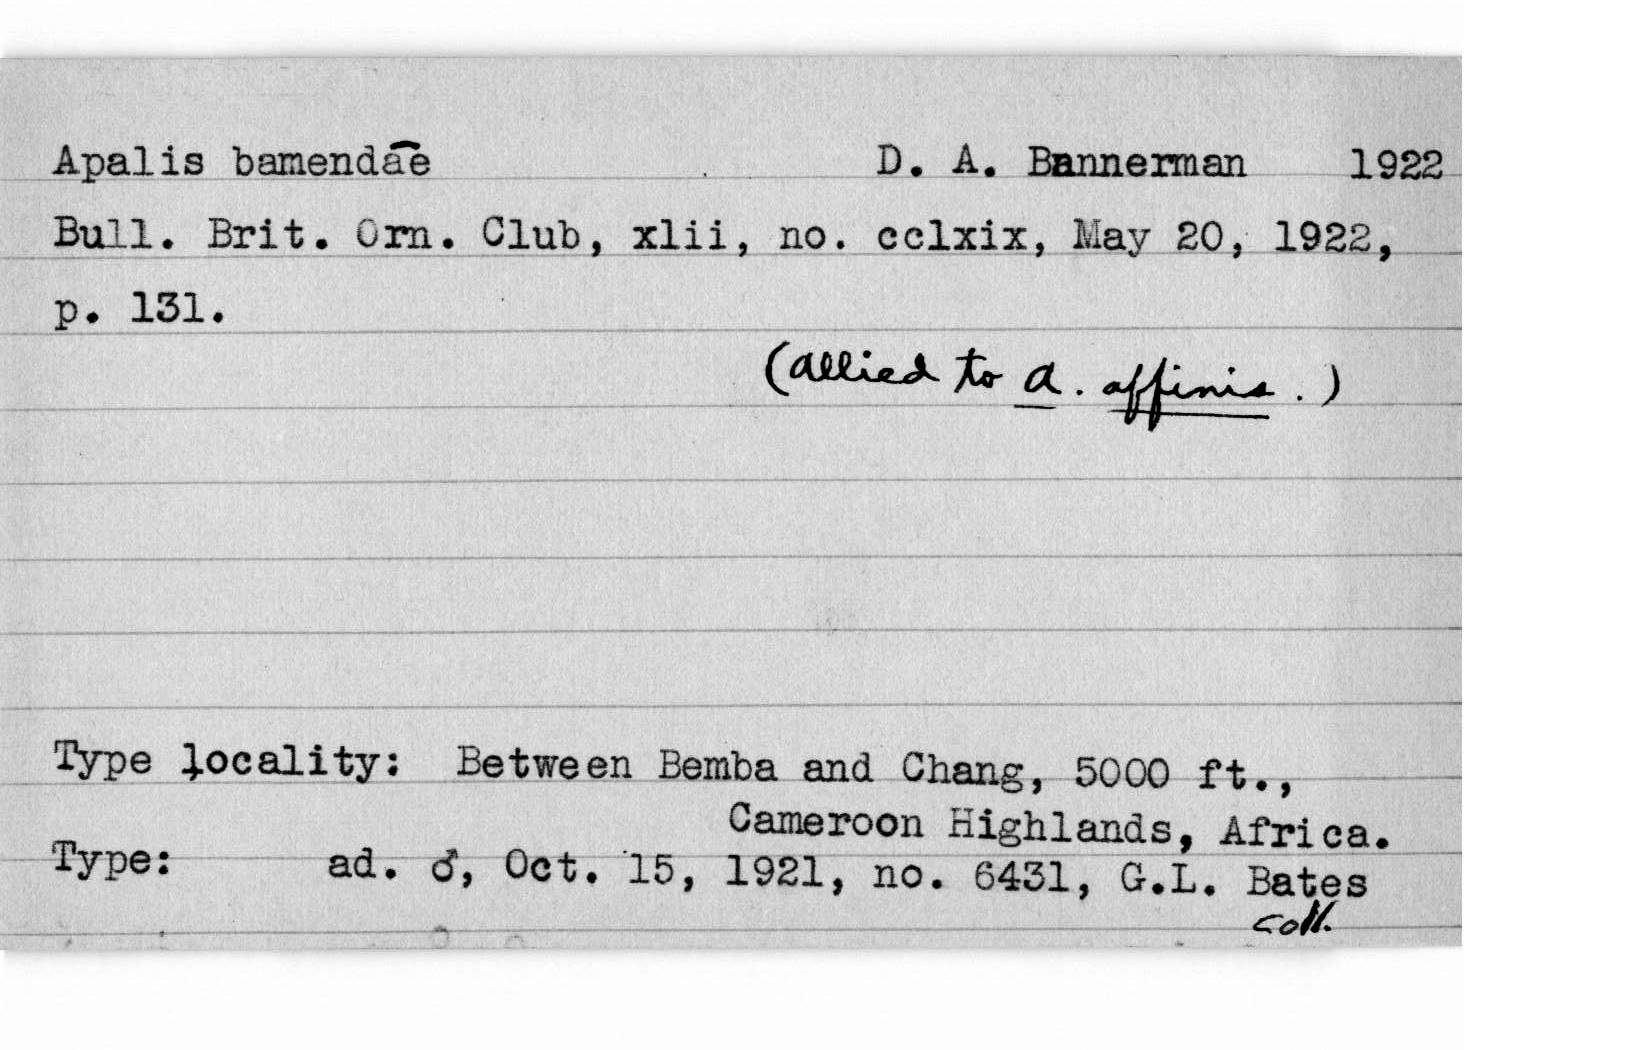 Apalis bamendae D. A. Bannerman 1922
Bull. Brit. Orn. Club, xlii, no. cclxix, May 20, 1922,
p. 131.
(allied to A. affinis.)
Type locality: Between Bemba and Chang, 5000 ft.,
Cameroon Highlands, Africa.
Type: ad. ♂, Oct. 15, 1921, no. 6431, G.L. Bates
coll.